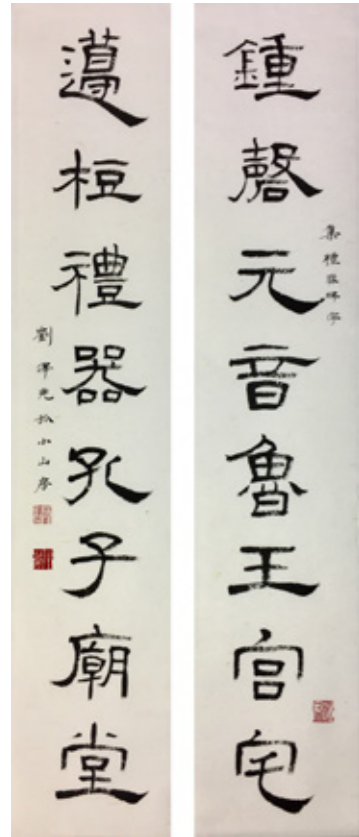 鍾磬元音魯王宫宅
集禮器碑字
籩梪禮器孔子廟堂
劉澤光於小山